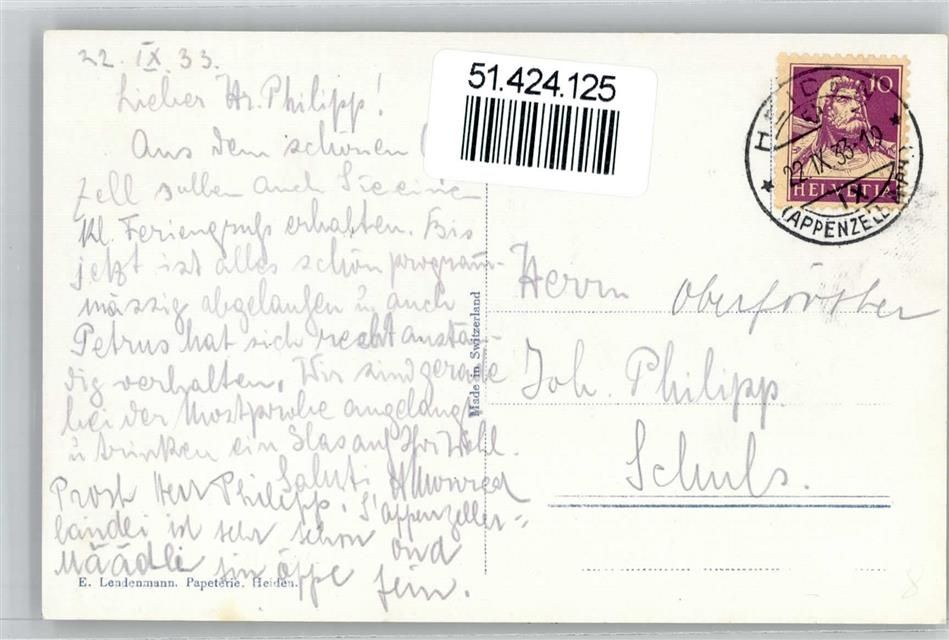 22. IX. 33.
Lieber Hr. Philipp!
Aus dem schönen
zell sollen auch Sie eine
kl. Feriengruss erhalten. Bis
jetzt ist alles schön program-
mässig abgelaufen u. auch
Petrus hat sich recht anstän-
dig verhalten. Wir sind gerade
bei der Mostprobe angelangt
u trinken ein Glas auf Ihr Wohl.
Saluti
Prost Herr Philipp, s'appenzeller-
ländli ist sehr schön ond
Määdle sin öppe fein.
E. Lendenmann, Papeterie, Heiden.
51.424.125
Made in Switzerland
10
HELVETIA
HEIDEN
22.IX.33-19
(APPENZELL
Herrn Oberförster
Joh. Philipp.
Schuls.
8